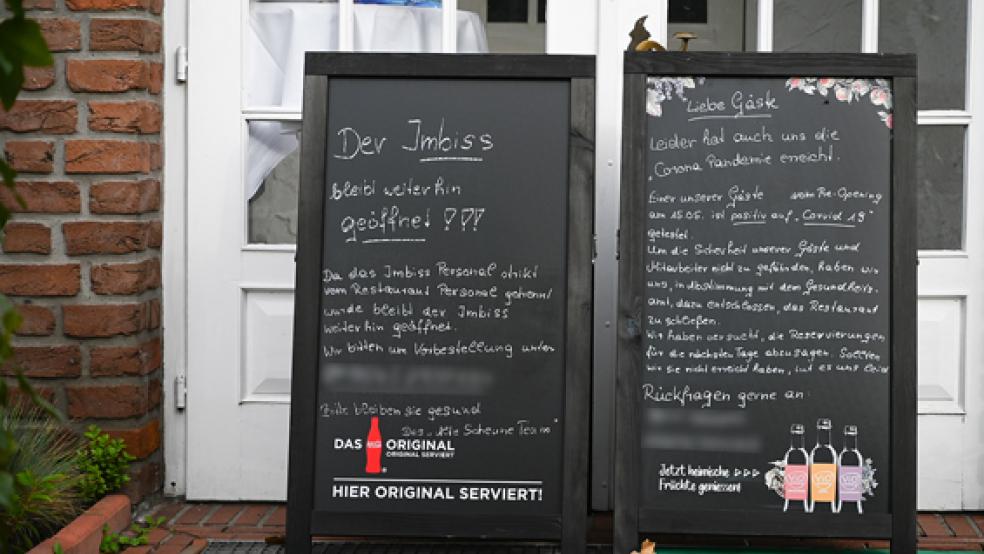 Der Imbiss
bleibt weiterhin
geöffnet !!!
Da das Imbiss Personal strikt
vom Restaurant Personal getrennt
wurde bleibt der Imbiss
weiterhin geöffnet.
Wir bitten um Vorbestellung unter
Bitte bleiben sie gesund
Das "Alte Scheune Team"
DAS ORIGINAL
ORIGINAL SERVIERT
HIER ORIGINAL SERVIERT!
Liebe Gäste
Leider hat auch uns die
"Corona Pandemie erreicht.
Einer unserer Gäste vom Re-Opening
am 15.05. ist positiv auf "Corvid 19"
getestet.
Um die Sicherheit unserer Gäste und
Mitarbeiter nicht zu gefährden, haben wir
uns, in Abstimmung mit dem Gesundheits-
amt, dazu entschlossen, das Restaurant
zu schließen.
Wir haben versucht, die Reservierungen
für die nächsten Tage abzusagen. Sollten
wir Sie nicht erreicht haben, tut es uns leid
Rückfragen gerne an:
Jetzt heimische
Früchte geniessen!